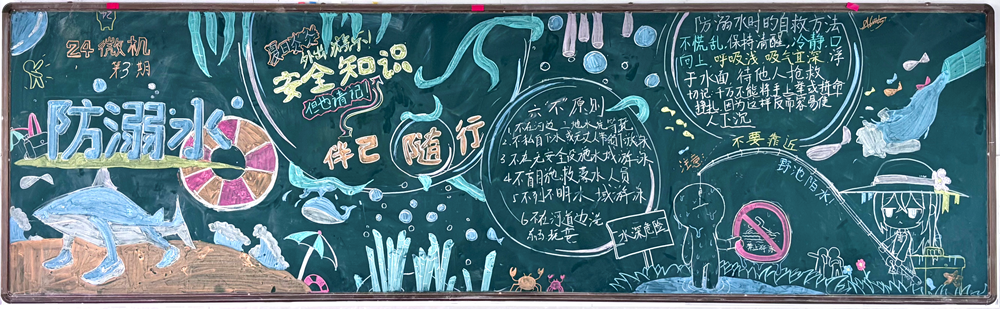 24微机
第3期
防溺水
外出游泳
安全知识
但也请记
伴己随行
六不原则
2.不私自下水
3.不在无安全设施水域游泳
4.不盲目施救落水人员
5.不到不明水域游泳
6.不在河道边沿
玩耍
水深危险
防溺水时的自救方法
不慌乱 保持清醒 冷静 口
向上 呼吸浅 吸气宜深 浮
于水面 待他人抢救
切记 千万不能将手上举或拼命
挣扎 因为这样反而容易使
下沉
不要靠近
野池陌水
注意
禁止游泳